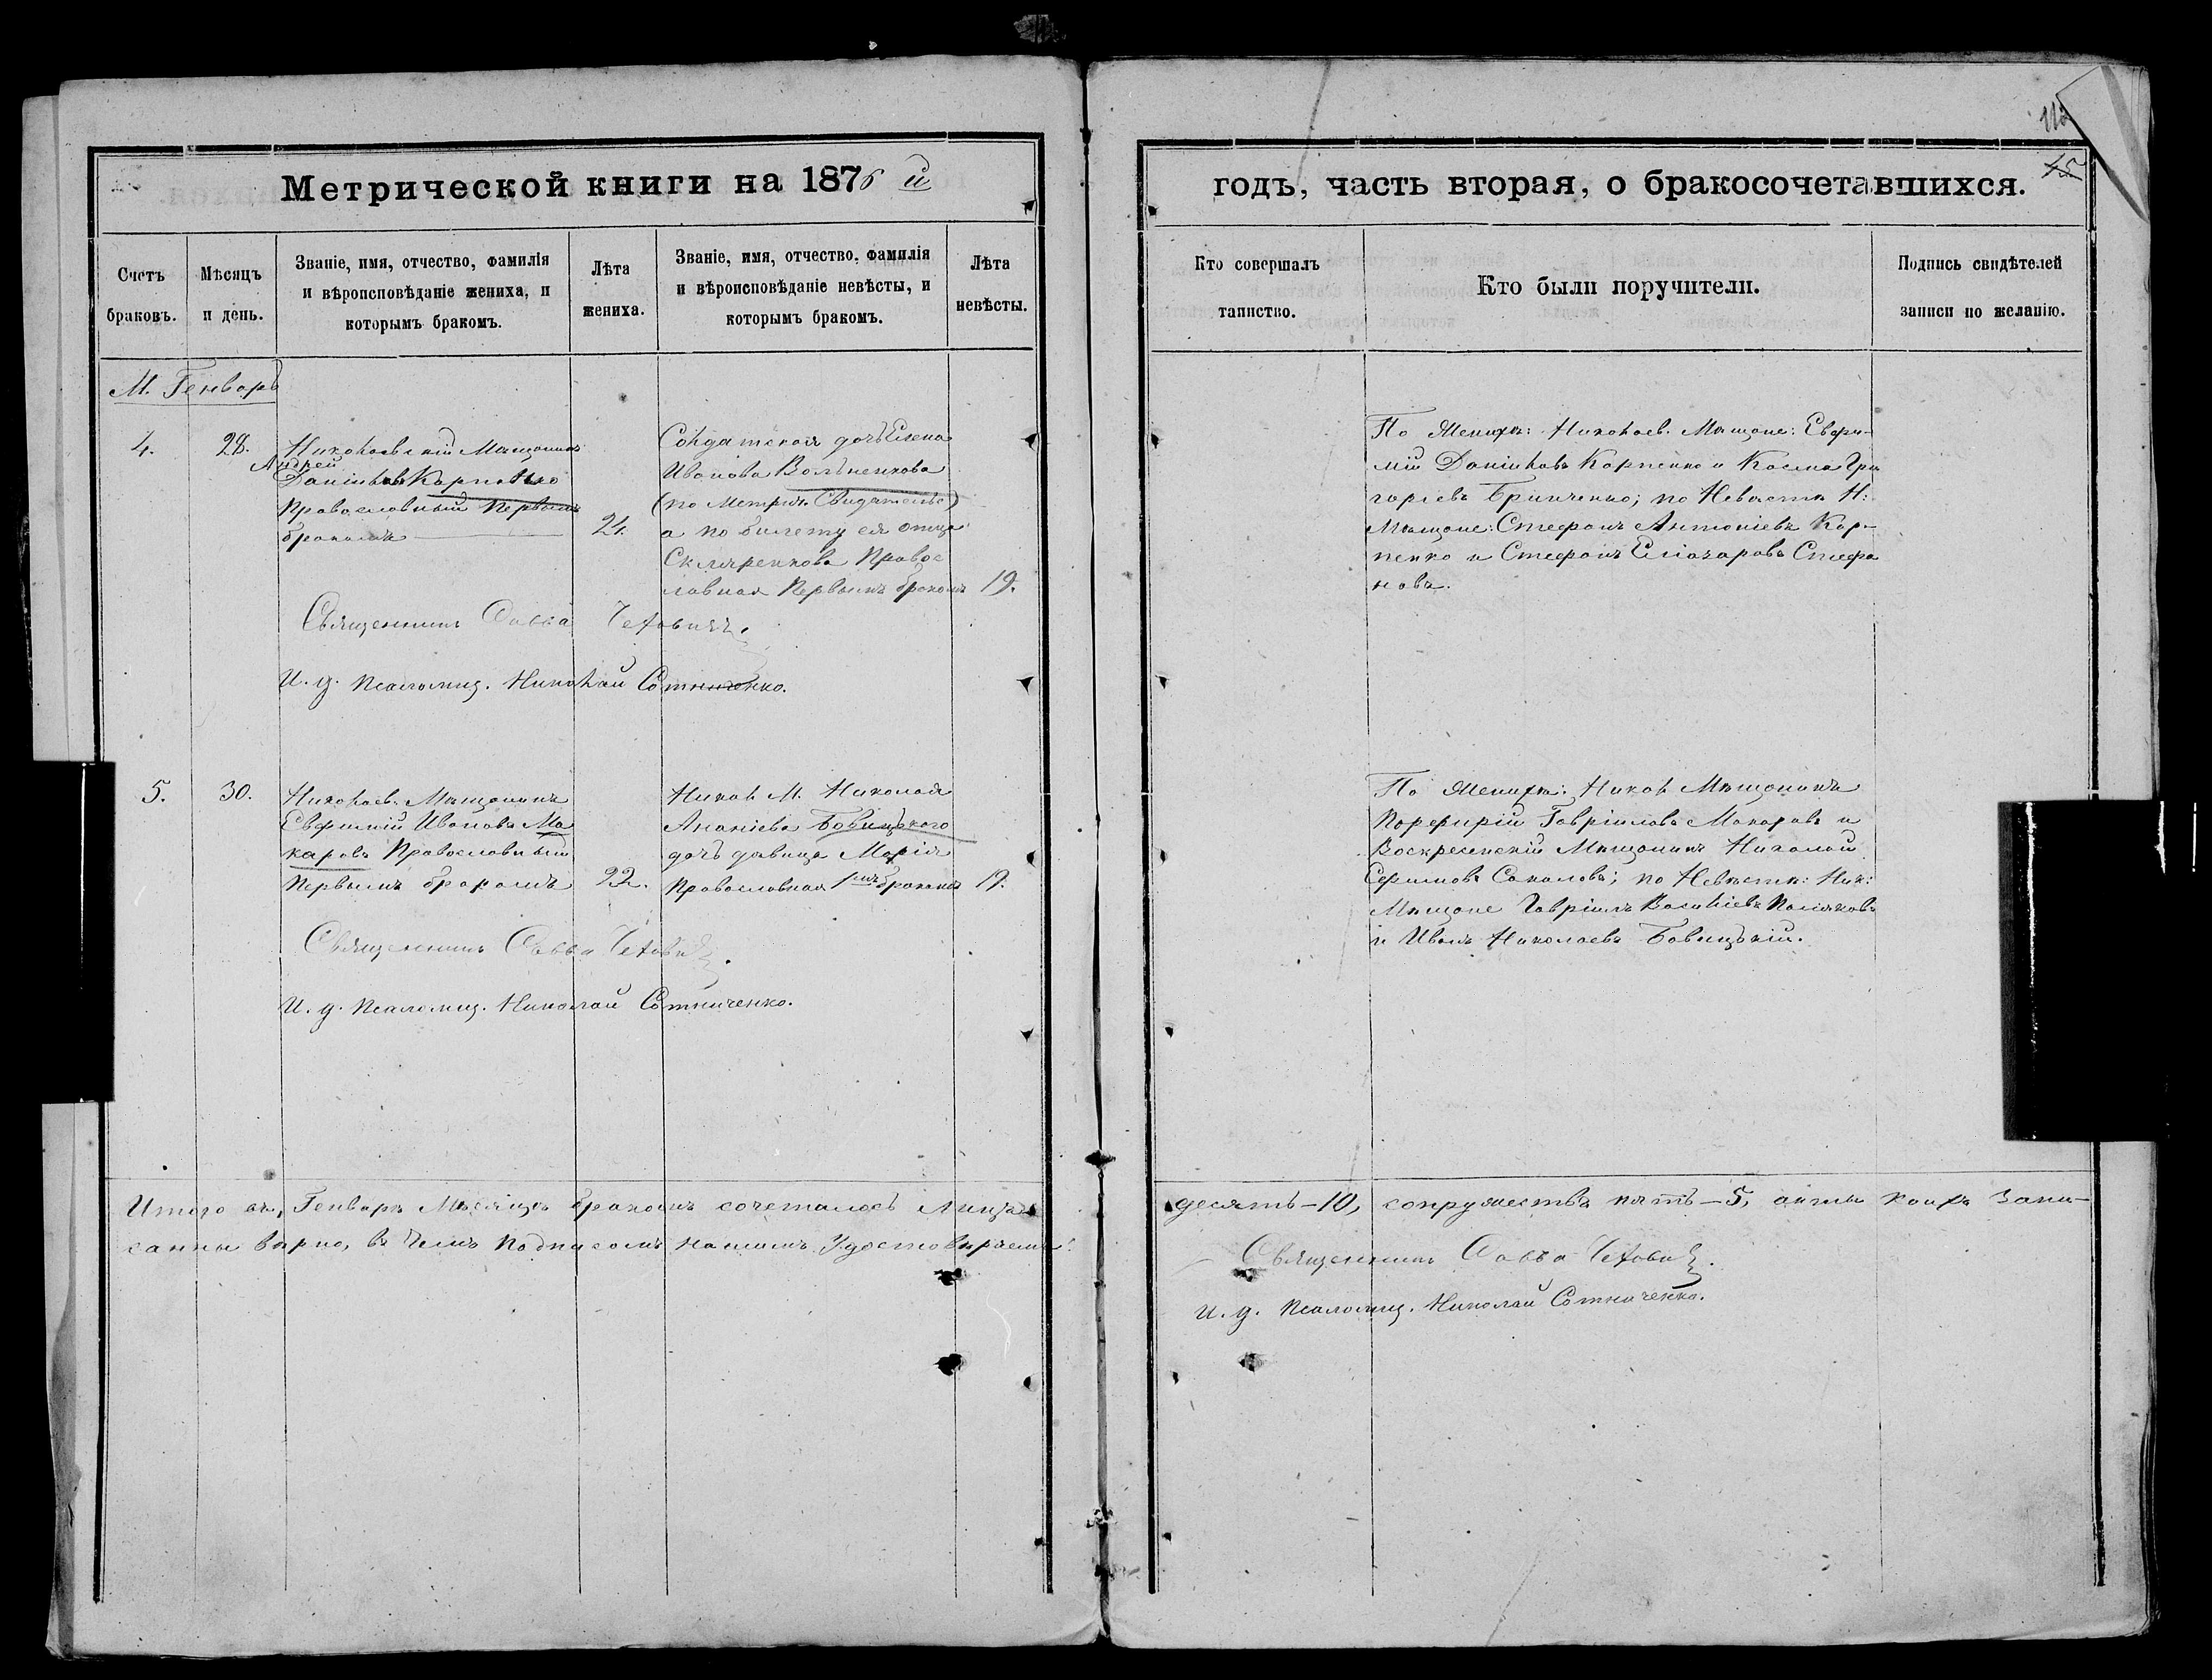 Метрической книги на 1876 й
годъ, часть вторая, о бракосочетавшихся.
Счетъ браковъ.
Мѣсяцъ и день.
Званіе, имя, отчество, фамилія
и вѣроисповѣданіе жениха, и
которымъ бракомъ.
Лѣта
жениха.
Званіе, имя, отчество, фамилія
и вѣроисповѣданіе невѣсты, и
которымъ бракомъ.
Лѣта
невѣсты.
Кто совершалъ
таинство.
Кто были поручители.
Подпись свидѣтелей
записи по желанію.
М. Генварь
4.
28.
Николаевскій Мѣщанинъ
Андрей
Даніиловъ Карпенко
Православный Первымъ
бракомъ
24.
Солдатская дочь Елена
Иванова Вольненкова
(по Метрич. Свидѣтельс)
а по билету ея отца
Скляренкова Правос
лавная Первымъ бракомъ
19.
По Женихѣ: Николаев. Мѣщане: Евфи-
мій Даніиловъ Карпенко и Косма Гри
горіевъ Гринченко; по Невѣстѣ Н:
Мѣщане: Стефанъ Антоніевъ Кар-
пенко и Стефанъ Еліазаровъ Стефа
новъ.
Священникъ Савва
И. д. Псаломщ. Николай Сотниченко.
5.
30.
Николаев. Мѣщанинъ
Евфимій Ивановъ Ма
каровъ Православный
Первымъ бракомъ
22.
Никол. М. Николая
Ананіева Бовицкого
дочь дѣвица Марія
Православная 1мъ бракомъ
19.
По Женихѣ: Никол. Мѣщанинъ
Порфирій Гавріиловъ Макаровъ и
Воскресенскій Мѣщанинъ Николай
Ефимовъ Соколовъ; по Невѣстѣ: Ник:
Мѣщане Гавріилъ Василіевъ Поляковъ
и Иванъ Николаевъ Бовицкій.
Священникъ Савва
И. д. Псаломщ. Николай Сотниченко.
Итого въ Генварѣ Мѣсяцѣ бракомъ сочеталось лицъ
десять-10, супружествъ пять-5, акты коихъ запи-
санны вѣрно, въ чемъ подписомъ нашимъ удостовѣряемъ.
Священникъ Савва
И. д. Псаломщ. Николай Сотниченко.